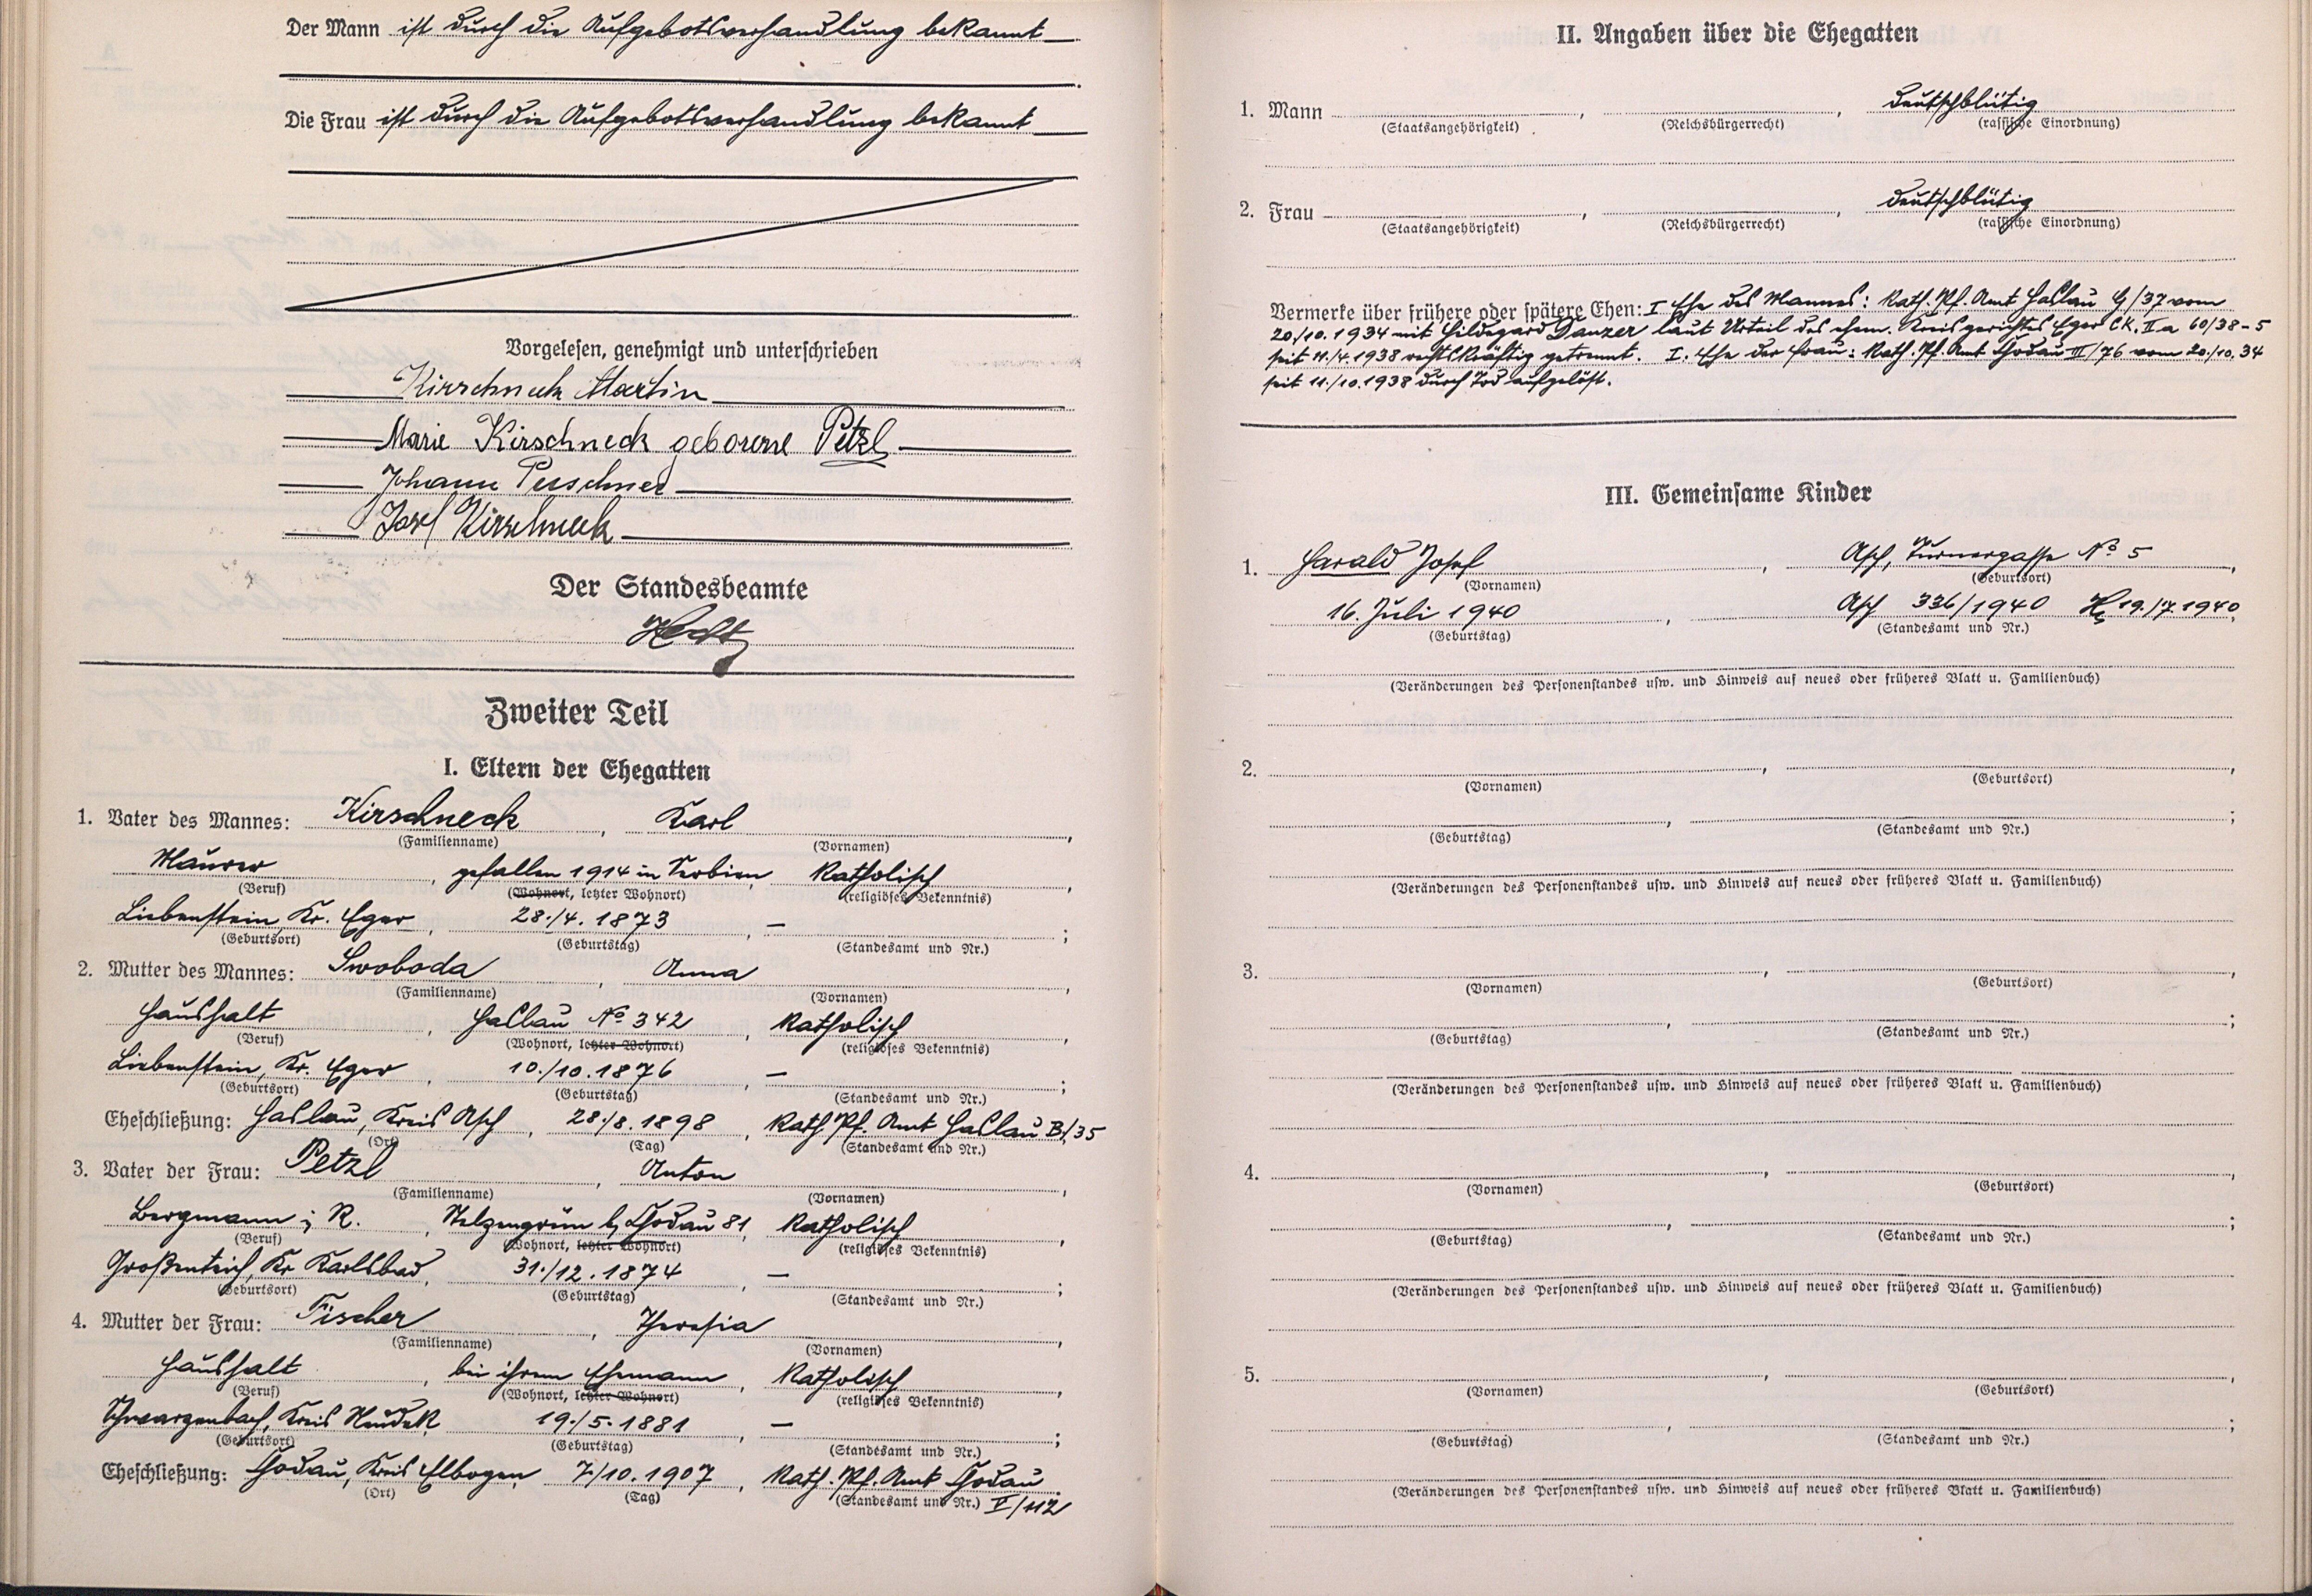 Der Mann ist durch die Aufgebotsverhandlung bekannt
Die Frau ist durch die Aufgebotsverhandlung bekannt
Vorgelesen, genehmigt und unterschrieben
Kirschneck Martin
Marie Kirschneck geborene Petzl
Johann
Josef Kirschneck
Der Standesbeamte
Zweiter Teil
I. Eltern der Ehegatten
1. Vater des Mannes: Kirschneck, Karl,
(Familienname) (Vornamen)
Maurer, gefallen 1914 in Serbien, Katholisch,
(Beruf) (Wohnort, letzter Wohnort) (religiöses Bekenntnis)
Liebenstein, Kr. Eger, 28./4. 1873, – ;
(Geburtsort) (Geburtstag) (Standesamt und Nr.)
2. Mutter des Mannes: Swoboda, Anna,
(Familienname) (Vornamen)
Haushalt, Haslau No 342, Katholisch,
(Beruf) (Wohnort, letzter Wohnort) (religiöses Bekenntnis)
Liebenstein, Kr. Eger, 10./10. 1876, – ;
(Geburtsort) (Geburtstag) (Standesamt und Nr.)
Eheschließung: Haslau, Kreis Asch, 28./8. 1898, Kath. Pf. Amt Haslau B/35
(Ort) (Tag) (Standesamt und Nr.)
3. Vater der Frau: Petzl, Anton,
(Familienname) (Vornamen)
Bergmann i. R., Stelzengrün b. Chodau 81, Katholisch,
(Beruf) (Wohnort, letzter Wohnort) (religiöses Bekenntnis)
Großenteich, Kr Karlsbad, 31./12. 1874, – ;
(Geburtsort) (Geburtstag) (Standesamt und Nr.)
4. Mutter der Frau: Fischer, Theresia,
(Familienname) (Vornamen)
Haushalt, bei ihrem Ehemann, Katholisch,
(Beruf) (Wohnort, letzter Wohnort) (religiöses Bekenntnis)
Schwarzenbach, Kreis Neudek, 19./5. 1881, – ;
(Geburtsort) (Geburtstag) (Standesamt und Nr.)
Eheschließung: Chodau, Kreis Elbogen, 7./10. 1907, Kath. Pf. Amt Chodau
(Ort) (Tag) (Standesamt und Nr.) V/112
II. Angaben über die Ehegatten
1. Mann , , deutschblütig
(Staatsangehörigkeit) (Reichsbürgerrecht) (rassische Einordnung)
2. Frau , , deutschblütig
(Staatsangehörigkeit) (Reichsbürgerrecht) (rassische Einordnung)
Vermerke über frühere oder spätere Ehen: I Ehe des Mannes: Kath. Pf. Amt Haslau G/37 vom
20./10. 1934 mit Hildegard Danzer laut Urteil des ehem. Kreisgerichtes Eger CK. IIa 60/38-5
seit 11./4. 1938 rechtskräftig getrennt. I. Ehe der Frau: Kath. Pf. Amt Chodau III/76 vom 20./10. 34
seit 11./10. 1938 durch Tod aufgelöst.
III. Gemeinsame Kinder
1. Harald Josef, Asch, Turnergasse No 5,
(Vornamen) (Geburtsort)
16. Juli 1940, Asch 336/1940 19./7. 1940
(Geburtstag) (Standesamt und Nr.)
(Veränderungen des Personenstandes usw. und Hinweis auf neues oder früheres Blatt u. Familienbuch)
2. , ,
(Vornamen) (Geburtsort)
, ;
(Geburtstag) (Standesamt und Nr.)
(Veränderungen des Personenstandes usw. und Hinweis auf neues oder früheres Blatt u. Familienbuch)
3. , ,
(Vornamen) (Geburtsort)
, ;
(Geburtstag) (Standesamt und Nr.)
(Veränderungen des Personenstandes usw. und Hinweis auf neues oder früheres Blatt u. Familienbuch)
4. , ,
(Vornamen) (Geburtsort)
, ;
(Geburtstag) (Standesamt und Nr.)
(Veränderungen des Personenstandes usw. und Hinweis auf neues oder früheres Blatt u. Familienbuch)
5. , ,
(Vornamen) (Geburtsort)
, ;
(Geburtstag) (Standesamt und Nr.)
(Veränderungen des Personenstandes usw. und Hinweis auf neues oder früheres Blatt u. Familienbuch)